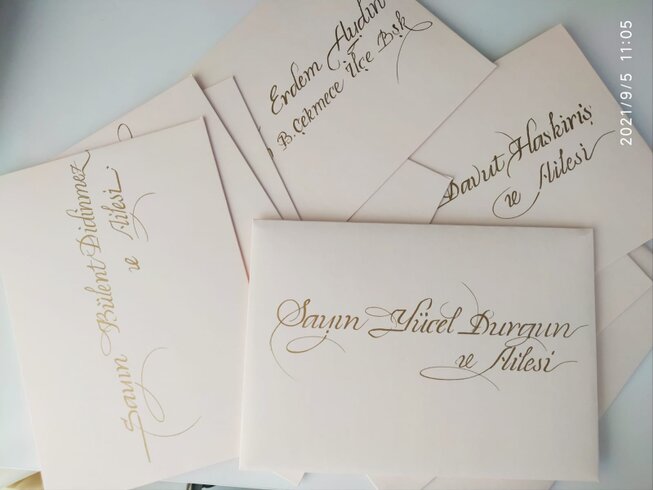 2021/9/5 11:05
Erdem Aydın
B.Çekmece İlçe Bşk
Davut Haskiriş
ve Ailesi
Sayın Bülent Didinmez
ve Ailesi
Sayın Yücel Durgun
ve Ailesi